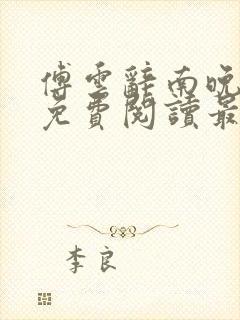 傅雲辭南晚
免費閱讀最
李良